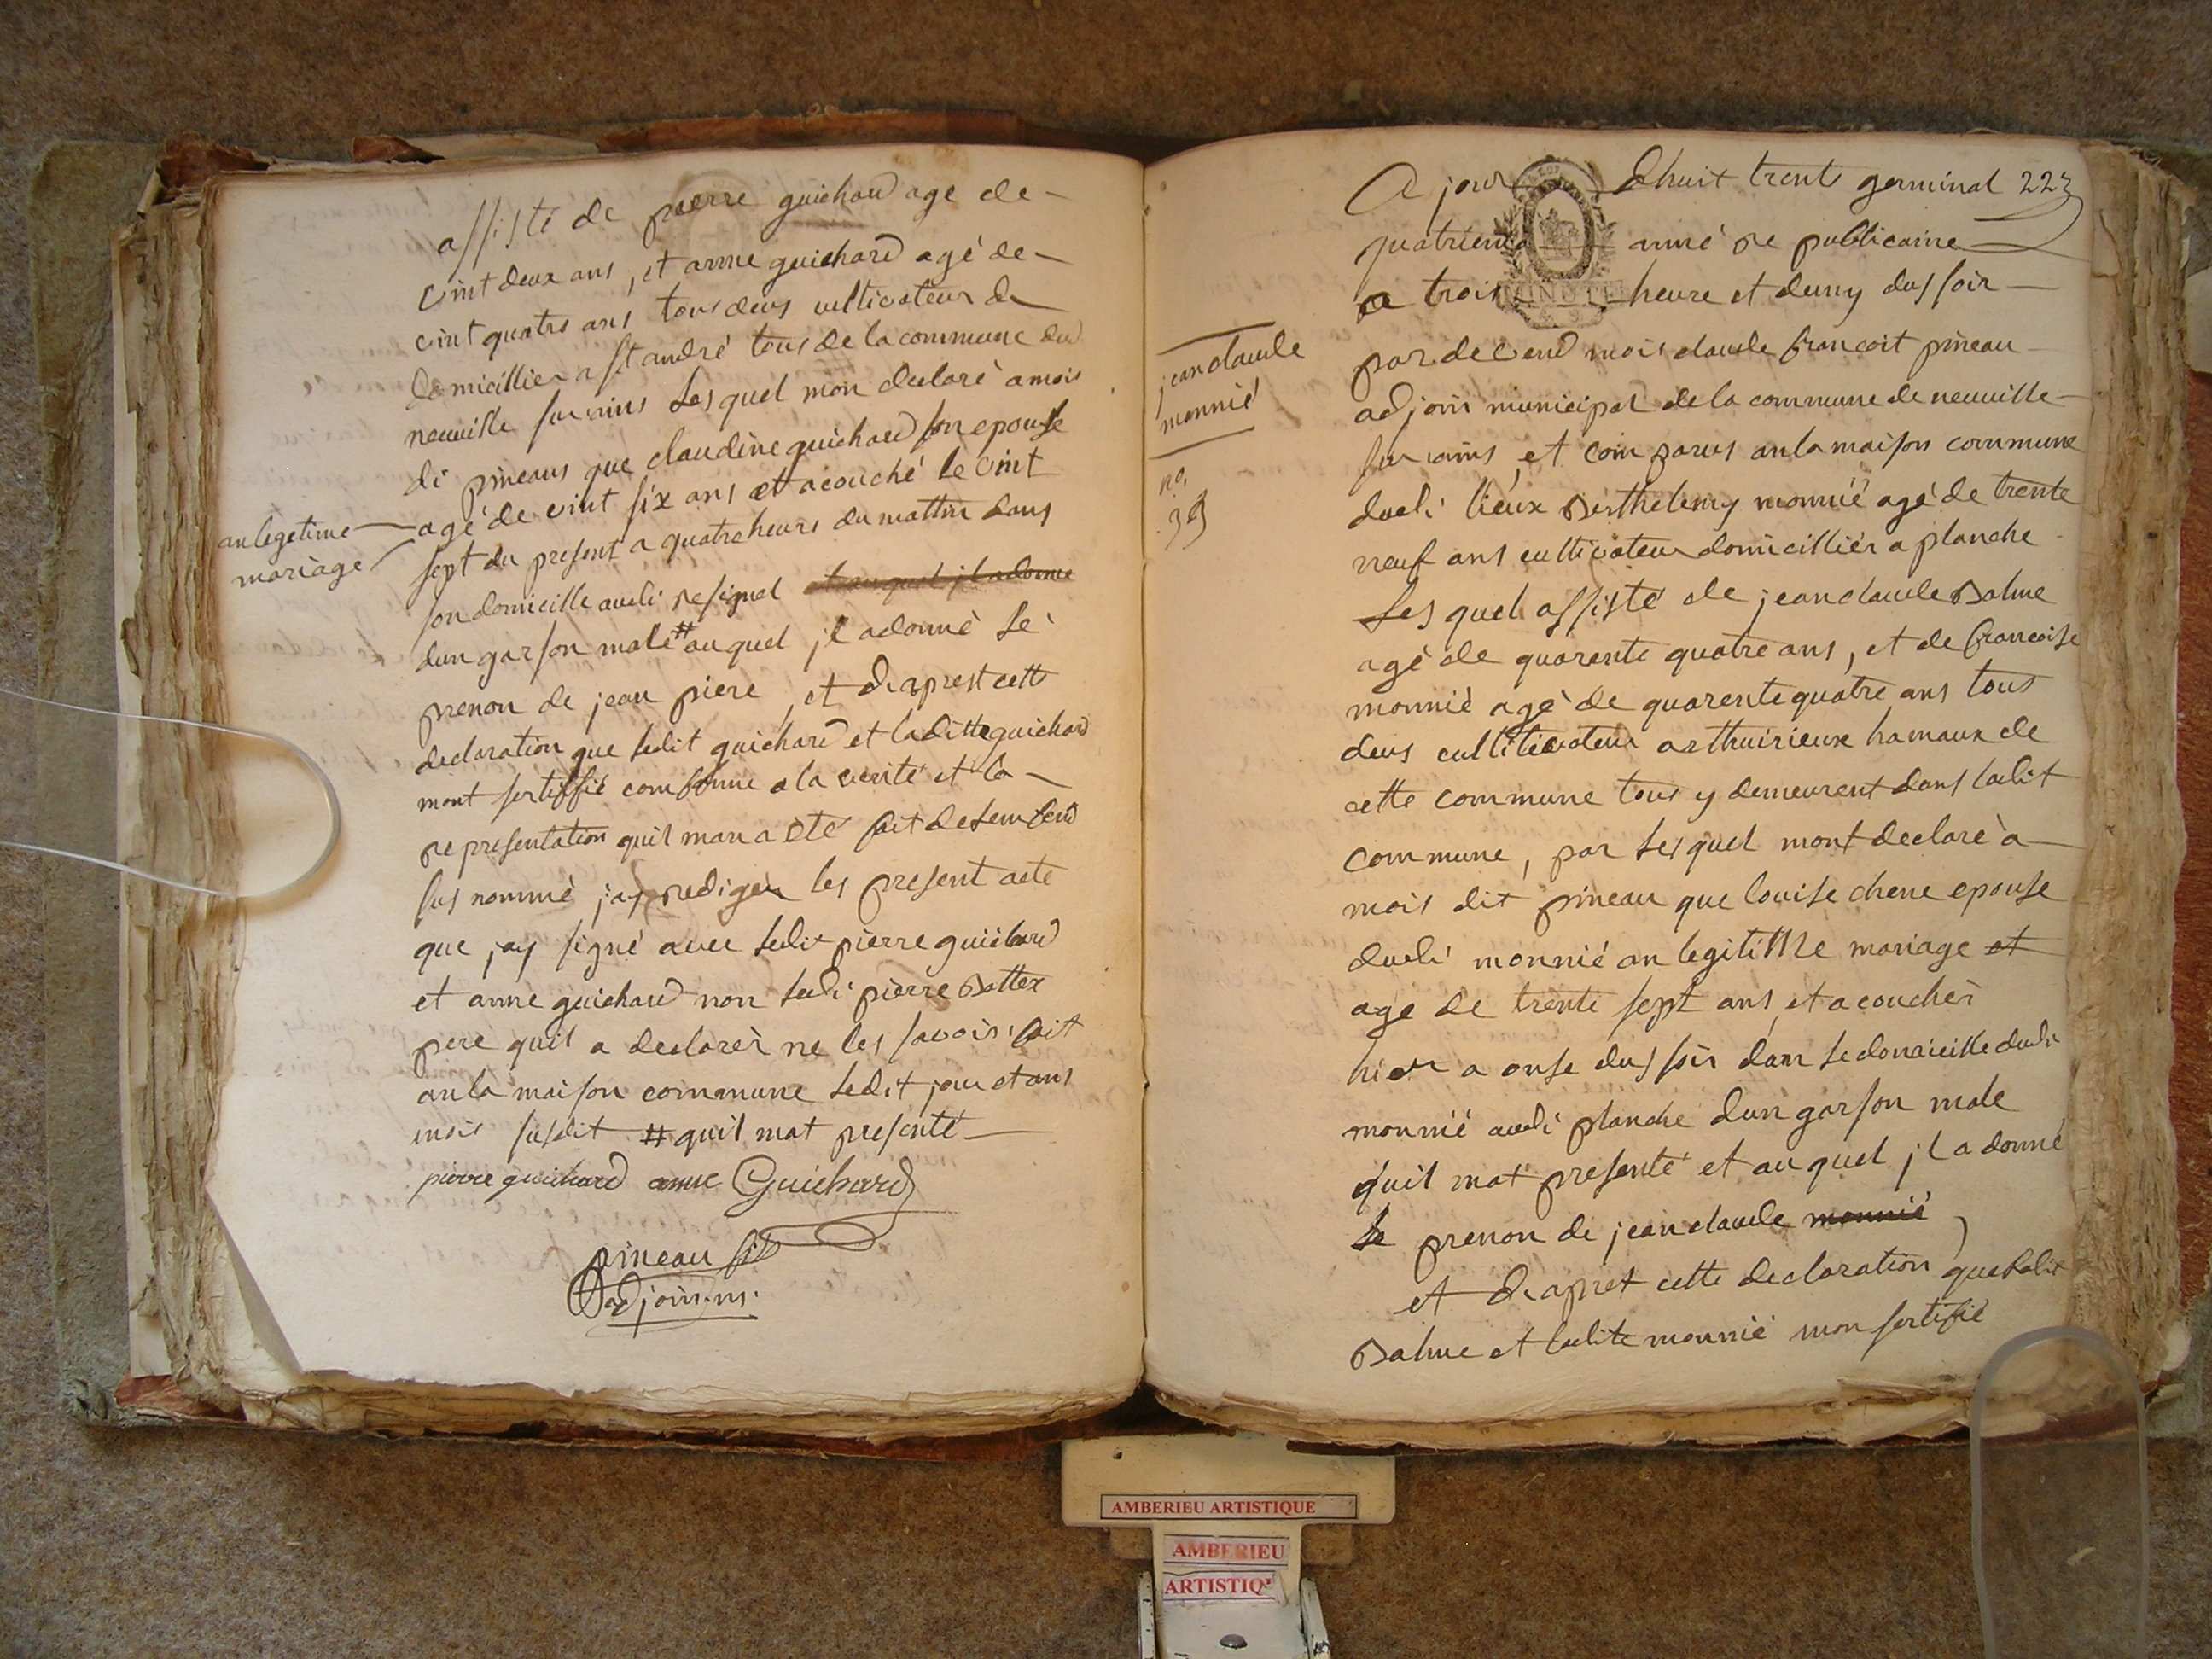 assisté de pierre guichard age de
vint deux ans, et anne guichard agé de
vint quatre ans tous deus cultivateur de
domicillier a st andré tous de la commune du
neuville sur ains les quel mon declaré a mois
di pineaus que claudine guichard son epouse
an legetime
mariage
agé de vint six ans et a couché le vint
sept du present a quatre heures du mattin dans
son domicille audi resignel et auquel jl a donné
dun garson male # au quel jl a donné le
prenon de jean piere, et draprest cette
declaration que ledit guichard et laditte guichard
mont sertiffié comforme a la verité et la
representation quil man a eté fait de lemfend
sus nommé jay rediger les present acte
que jay signé avec ledit pierre guichard
et anne guichard non ledi pierre Battex
pere quil a declarèr ne les savoir. fait
an la maison commune ledit jour et ans
mois susdit # quil mat presenté
pierre guichard anne Guichard
pineau fils
adjoin. m.
A jour dhuit trente germinal 223
quatrieme anné re publicaine
a trois heure et demy dus soir
MINUTE
jean claude
monnié
no.
39
par devend mois claude francoit pineau
adjoin municipal de la commune de neuville
sur ains, et com parus an la maison commune
dudi lieux Berthelemy monnié agé de trente
neuf ans cultivateur domicillièr a planche
les quel assisté de jean claude Balme
agé de quarente quatre ans, et de francoise
monnié agè de quarente quatre ans tous
deus cultitivateur a rthuirieux hamaux de
cette commune tous y demeurent dans ladit
commune, par les quel mont declarè a
mois dit pineau que louise chene epouse
dudi monnié an legitime mariage et
age de trente sept ans, et a couchèr
hier a onse dus soir dan le domicille dudi
monnié audi planche dun garson male
quil mat presenté et au quel jl a donné
le prenon de jean claude monnié,
et drapret cette declaration que ledit
Balme et ladite monnié mon sertifié
AMBERIEU ARTISTIQUE
AMBERIEU
ARTISTIQ